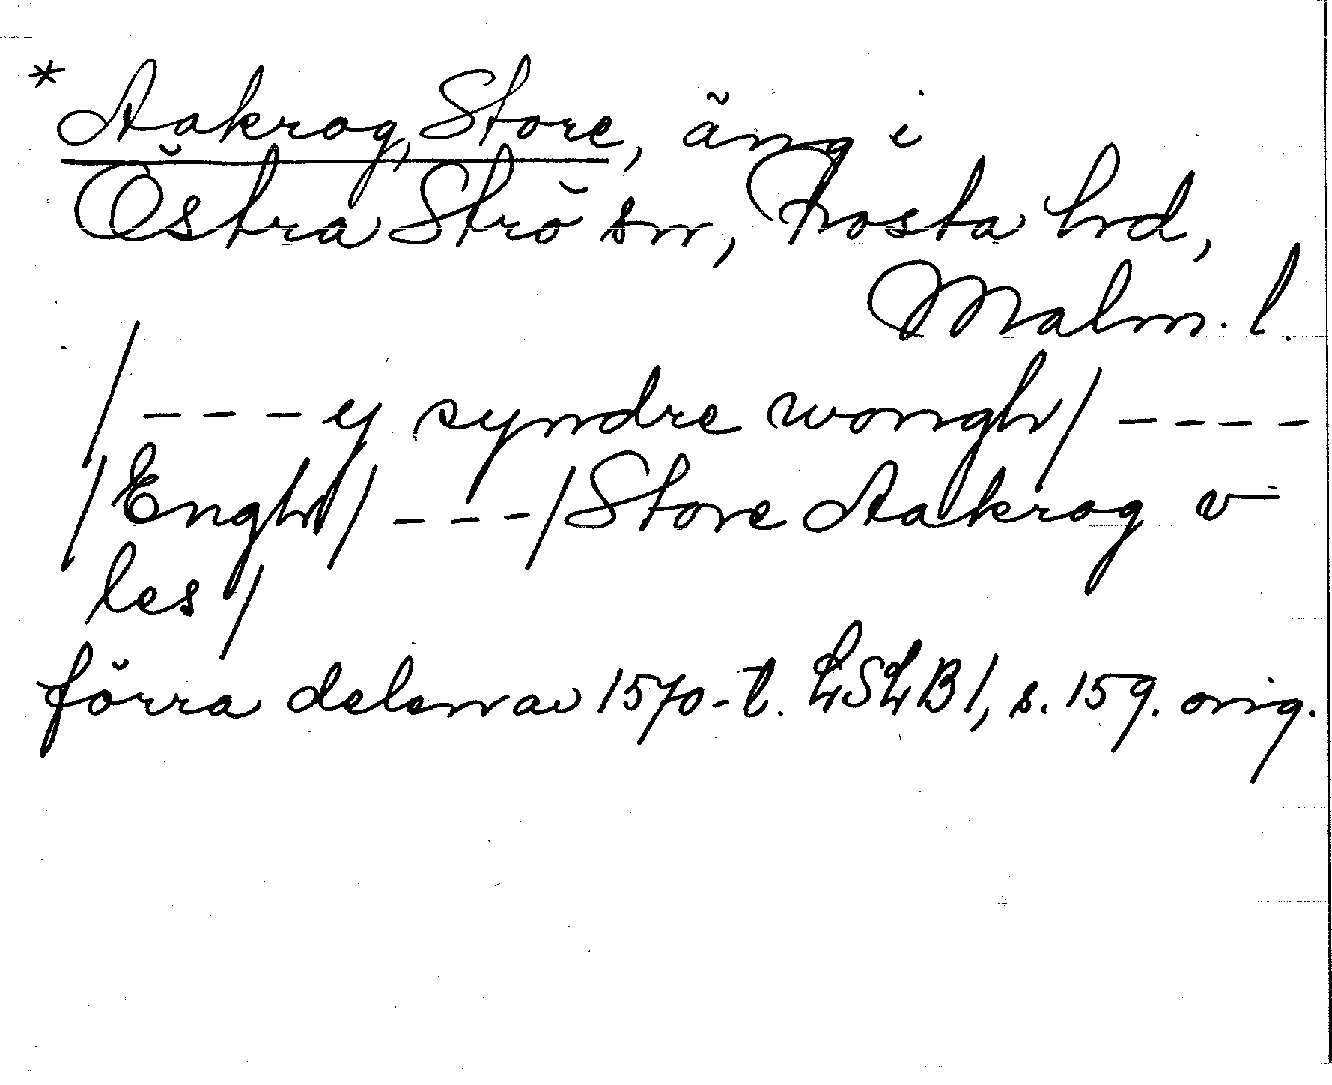 * Aakrog, Store, äng i
Östra Strö sn, Frosta hd,
Malm. l.
/ - - - y syndre wongh / - - - -
/ Engh / - - - / Store Aakrog v
les /
förra delen av 1570-t. LSLB1, s. 159. orig.